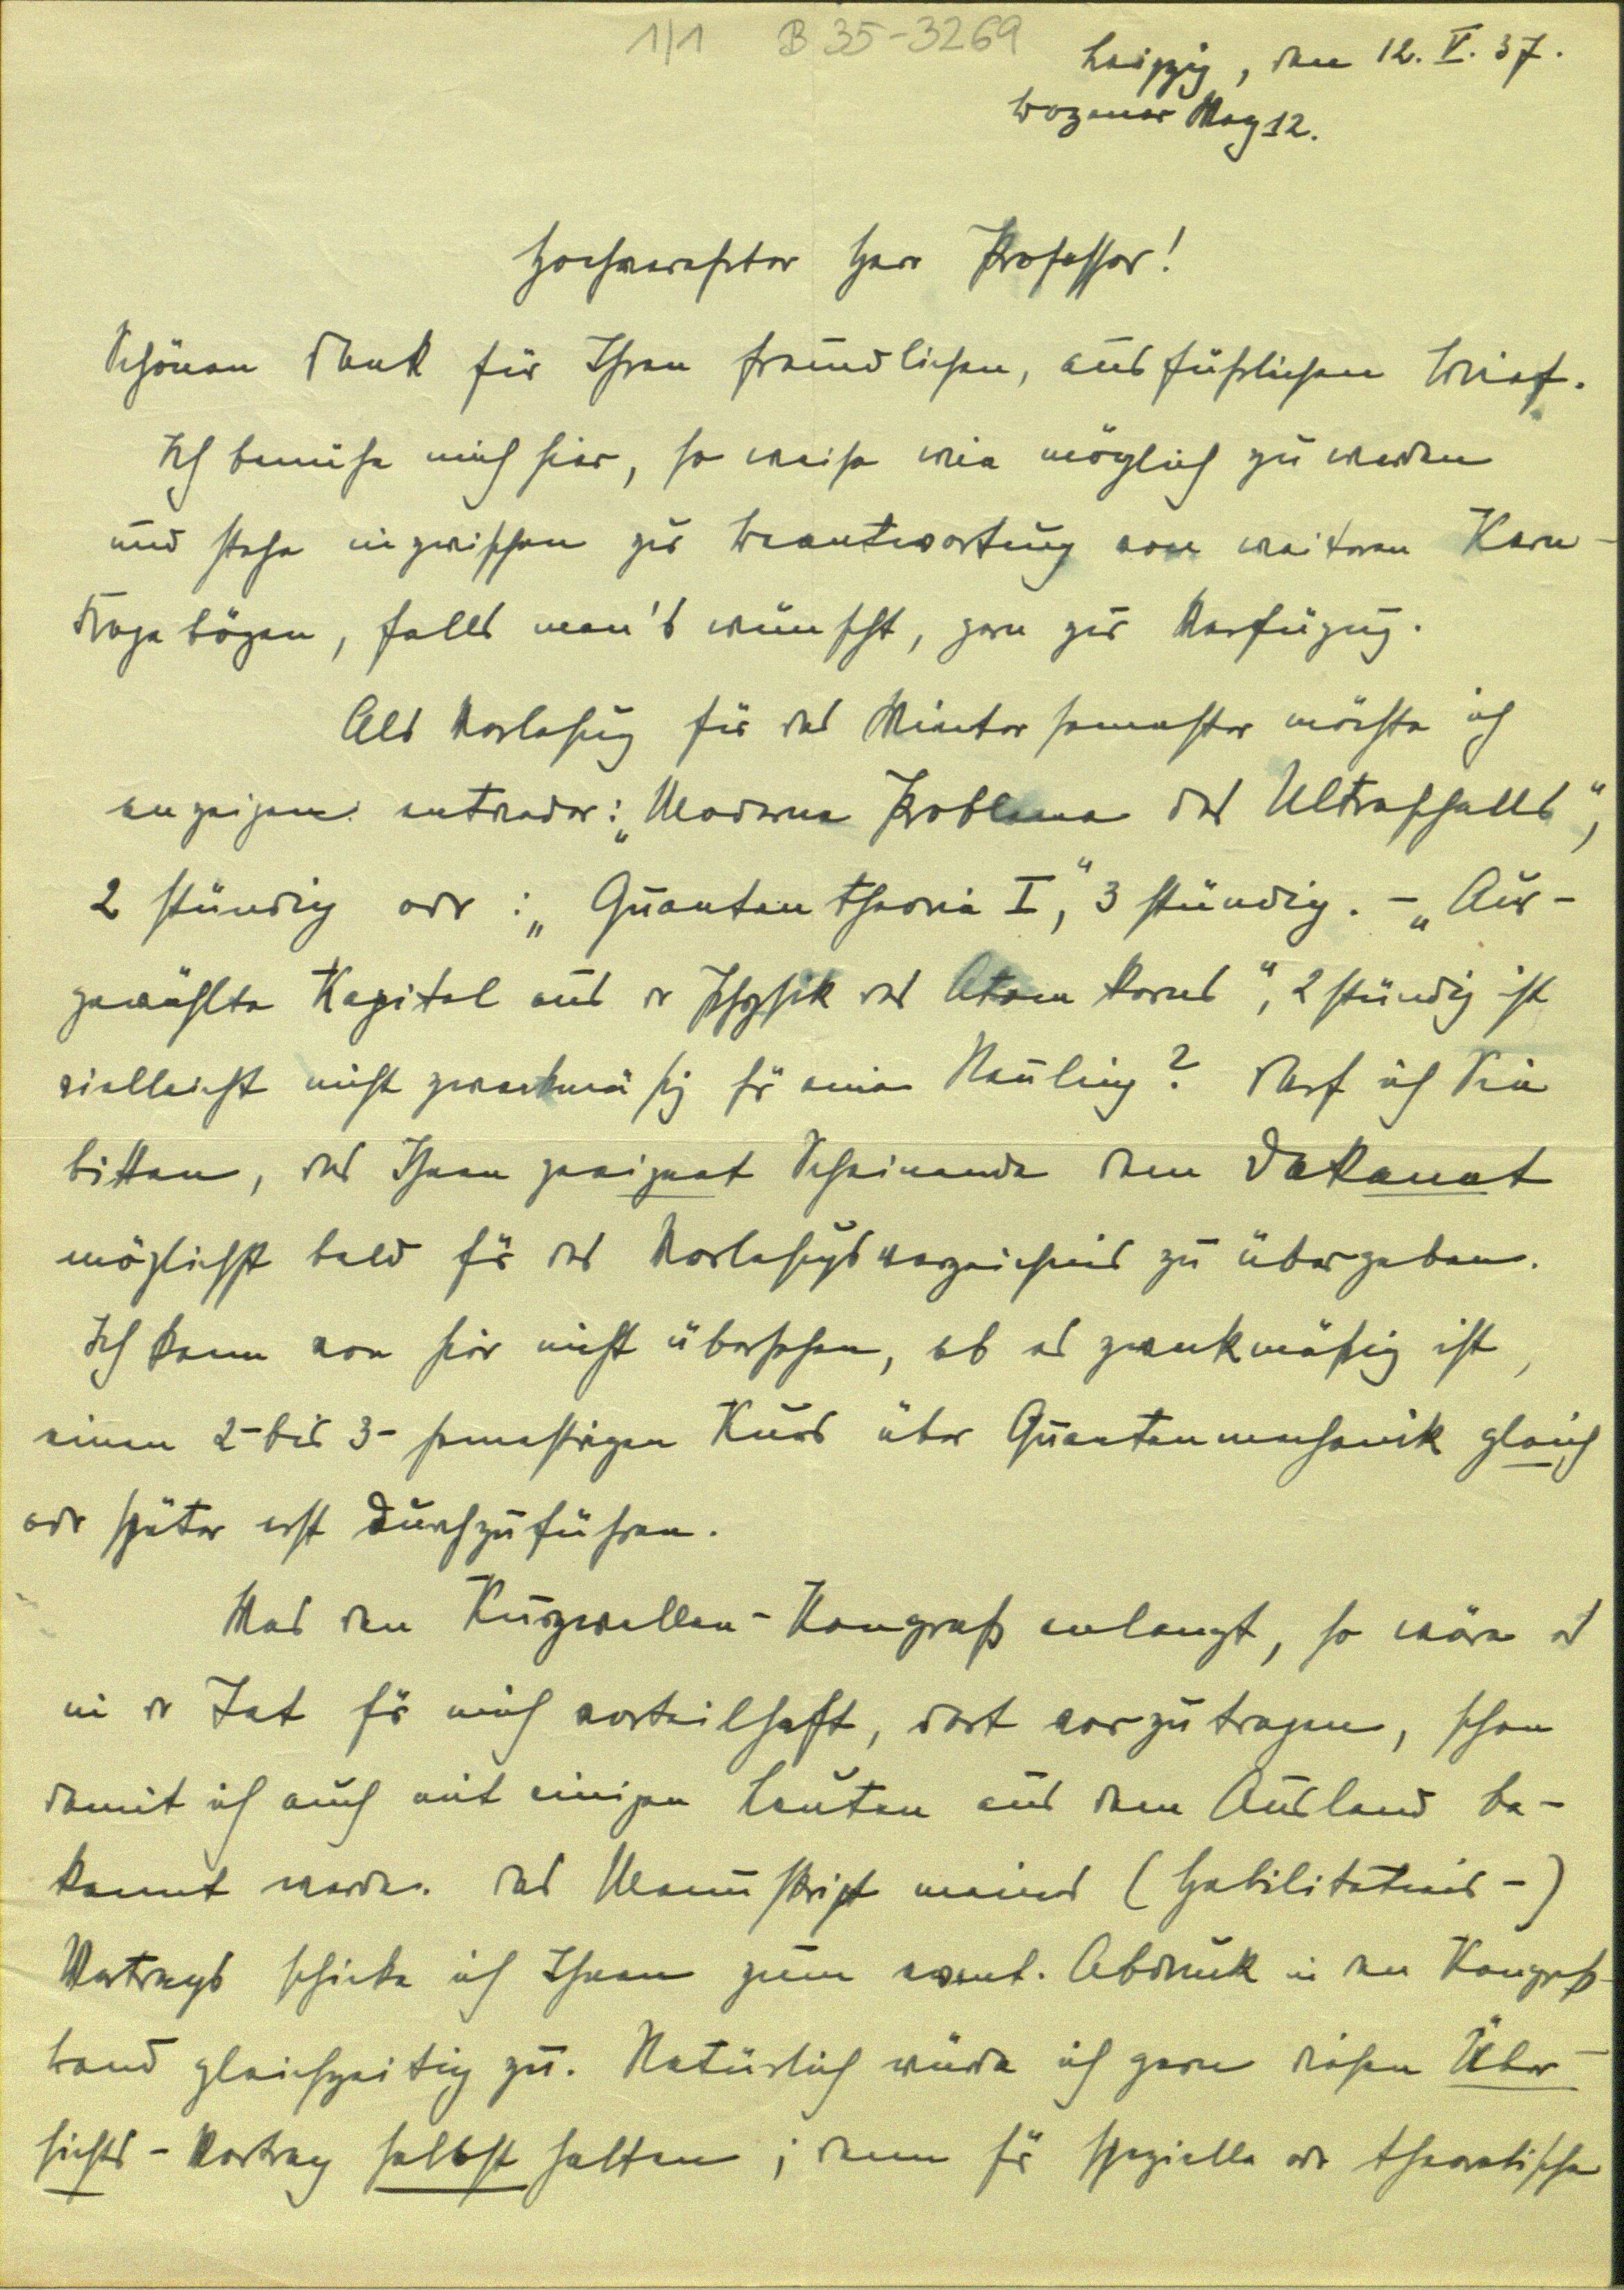 1/1 B 35-3269
Leipzig, den 12. V. 37.
Bozener Weg 12.
Hochverehrter Herr Professor!
Schönen Dank für Ihren freundlichen, ausführlichen Brief.
Ich bemühe mich hier, so weise wie möglich zu werden
und stehe inzwischen zur Beantwortung von weiteren Kern-
fragebögen, falls man's wünscht, gern zur Verfügung.
Als Vorlesung für das Wintersemester möchte ich
anzeigen entweder: „Moderne Probleme des Ultraschalls“,
2 stündig oder: „Quantentheorie I“, 3 stündig. - „Aus-
gewählte Kapitel aus der Physik des Atomkerns“, 2 stündig ist
vielleicht nicht zweckmäßig für einen Neuling? Darf ich Sie
bitten, das Ihnen geeignet Scheinende dem Dekanat
möglichst bald für das Vorlesungsverzeichnis zu übergeben.
Ich kann von hier nicht übersehen, ob es zweckmäßig ist,
einen 2- bis 3-semestrigen Kurs über Quantenmechanik gleich
oder später erst durchzuführen.
Was den Kurzwellen-Kongreß anlangt, so wäre es
in der Tat für mich vorteilhaft, dort vorzutragen, schon
damit ich auch mit einigen Leuten aus dem Ausland be-
kannt werde. Das Manuskript meines (Habilitations-)
Vortrags schicke ich Ihnen zum event. Abdruck in den Kongreß-
band gleichzeitig zu. Natürlich würde ich gern diesen Über-
sichts-Vortrag selbst halten; denn für spezielle oder theoretische